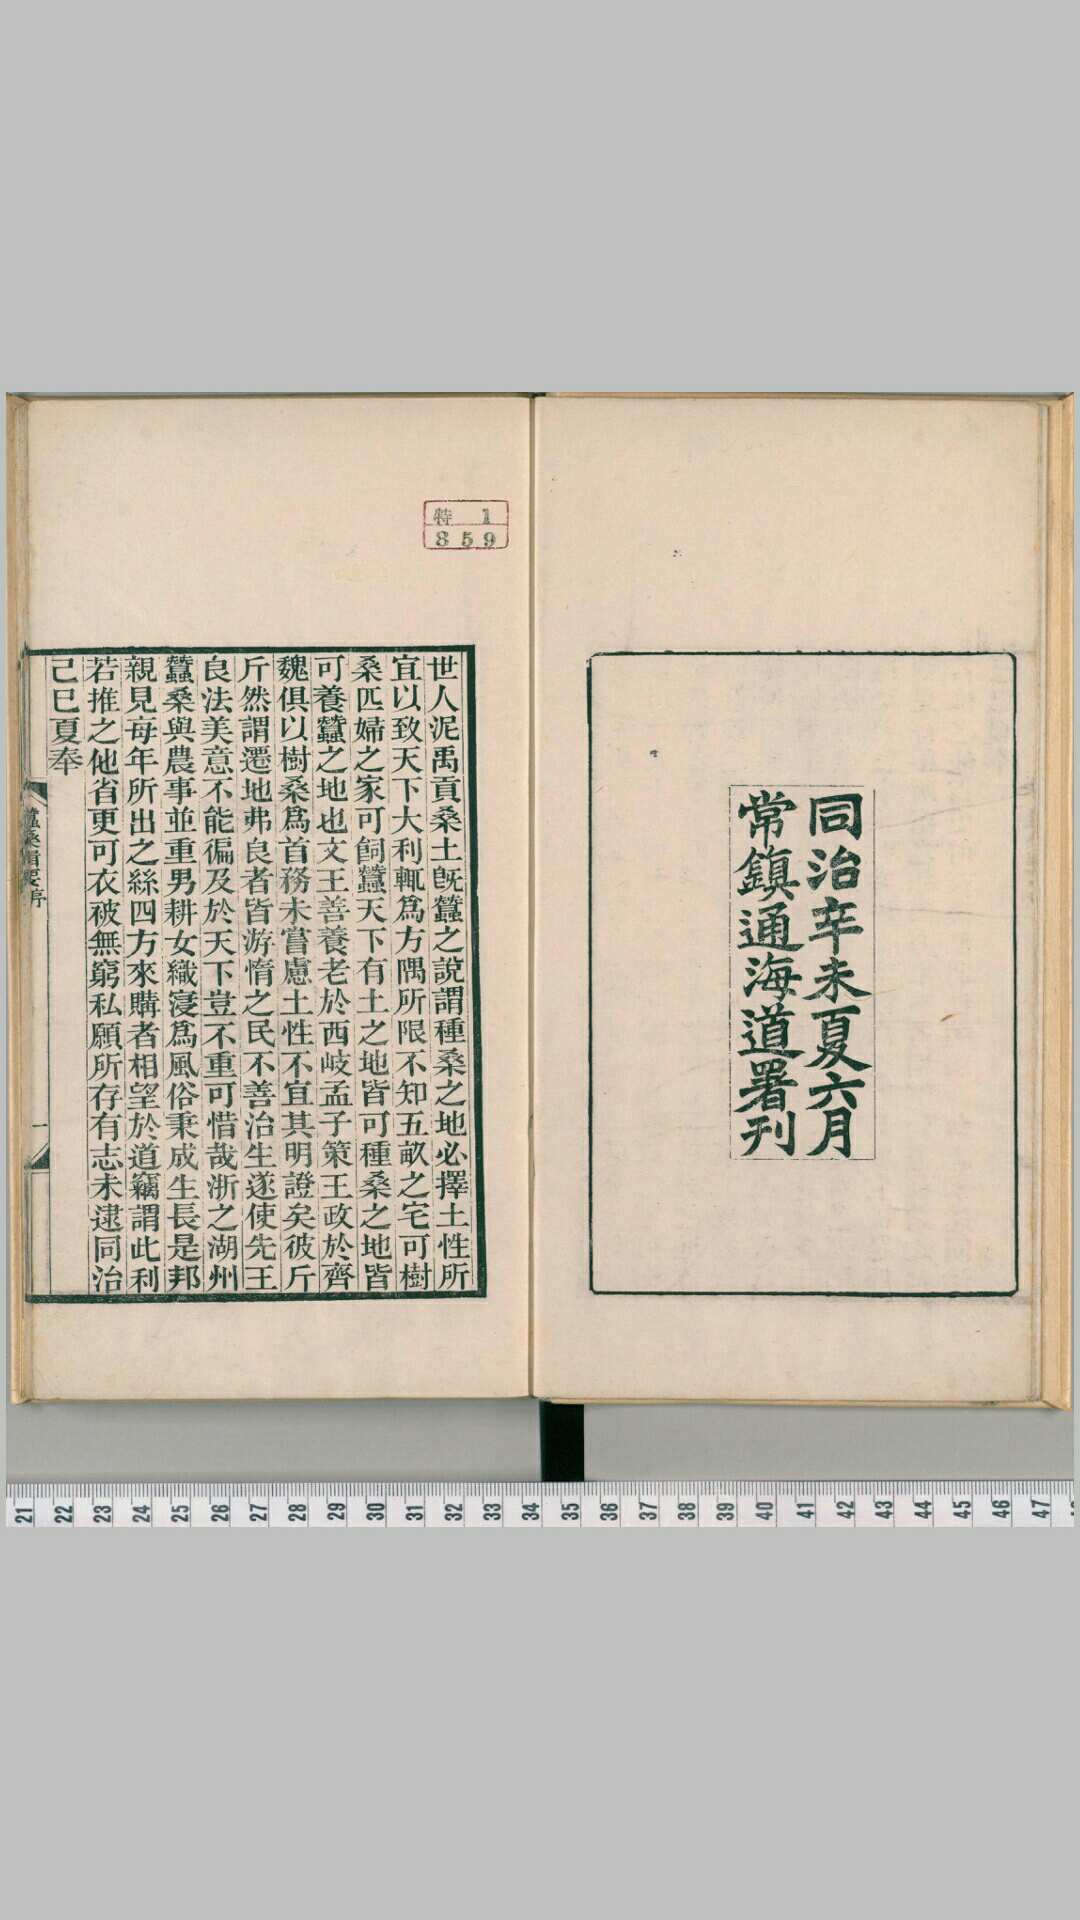 同治辛未夏六月
常鎮通海道署刊
特 1
859
世人泥禹貢桑土旣蠶之說謂種桑之地必擇土性所
宜以致天下大利輒爲方隅所限不知五畝之宅可樹
桑匹婦之家可飼蠶天下有土之地皆可種桑之地皆
可養蠶之地也文王善養老於西岐孟子策王政於齊
魏俱以樹桑爲首務未嘗慮土性不宜其明證矣彼斤
斤然謂遷地弗良者皆游惰之民不善治生遂使先王
良法美意不能徧及於天下豈不重可惜哉浙之湖州
蠶桑與農事並重男耕女織寖爲風俗秉成生長是邦
親見每年所出之絲四方來購者相望於道竊謂此利
若推之他省更可衣被無窮私願所存有志未逮同治
己巳夏奉
蠶桑輯要序
一
21 22 23 24 25 26 27 28 29 30 31 32 33 34 35 36 37 38 39 40 41 42 43 44 45 46 47